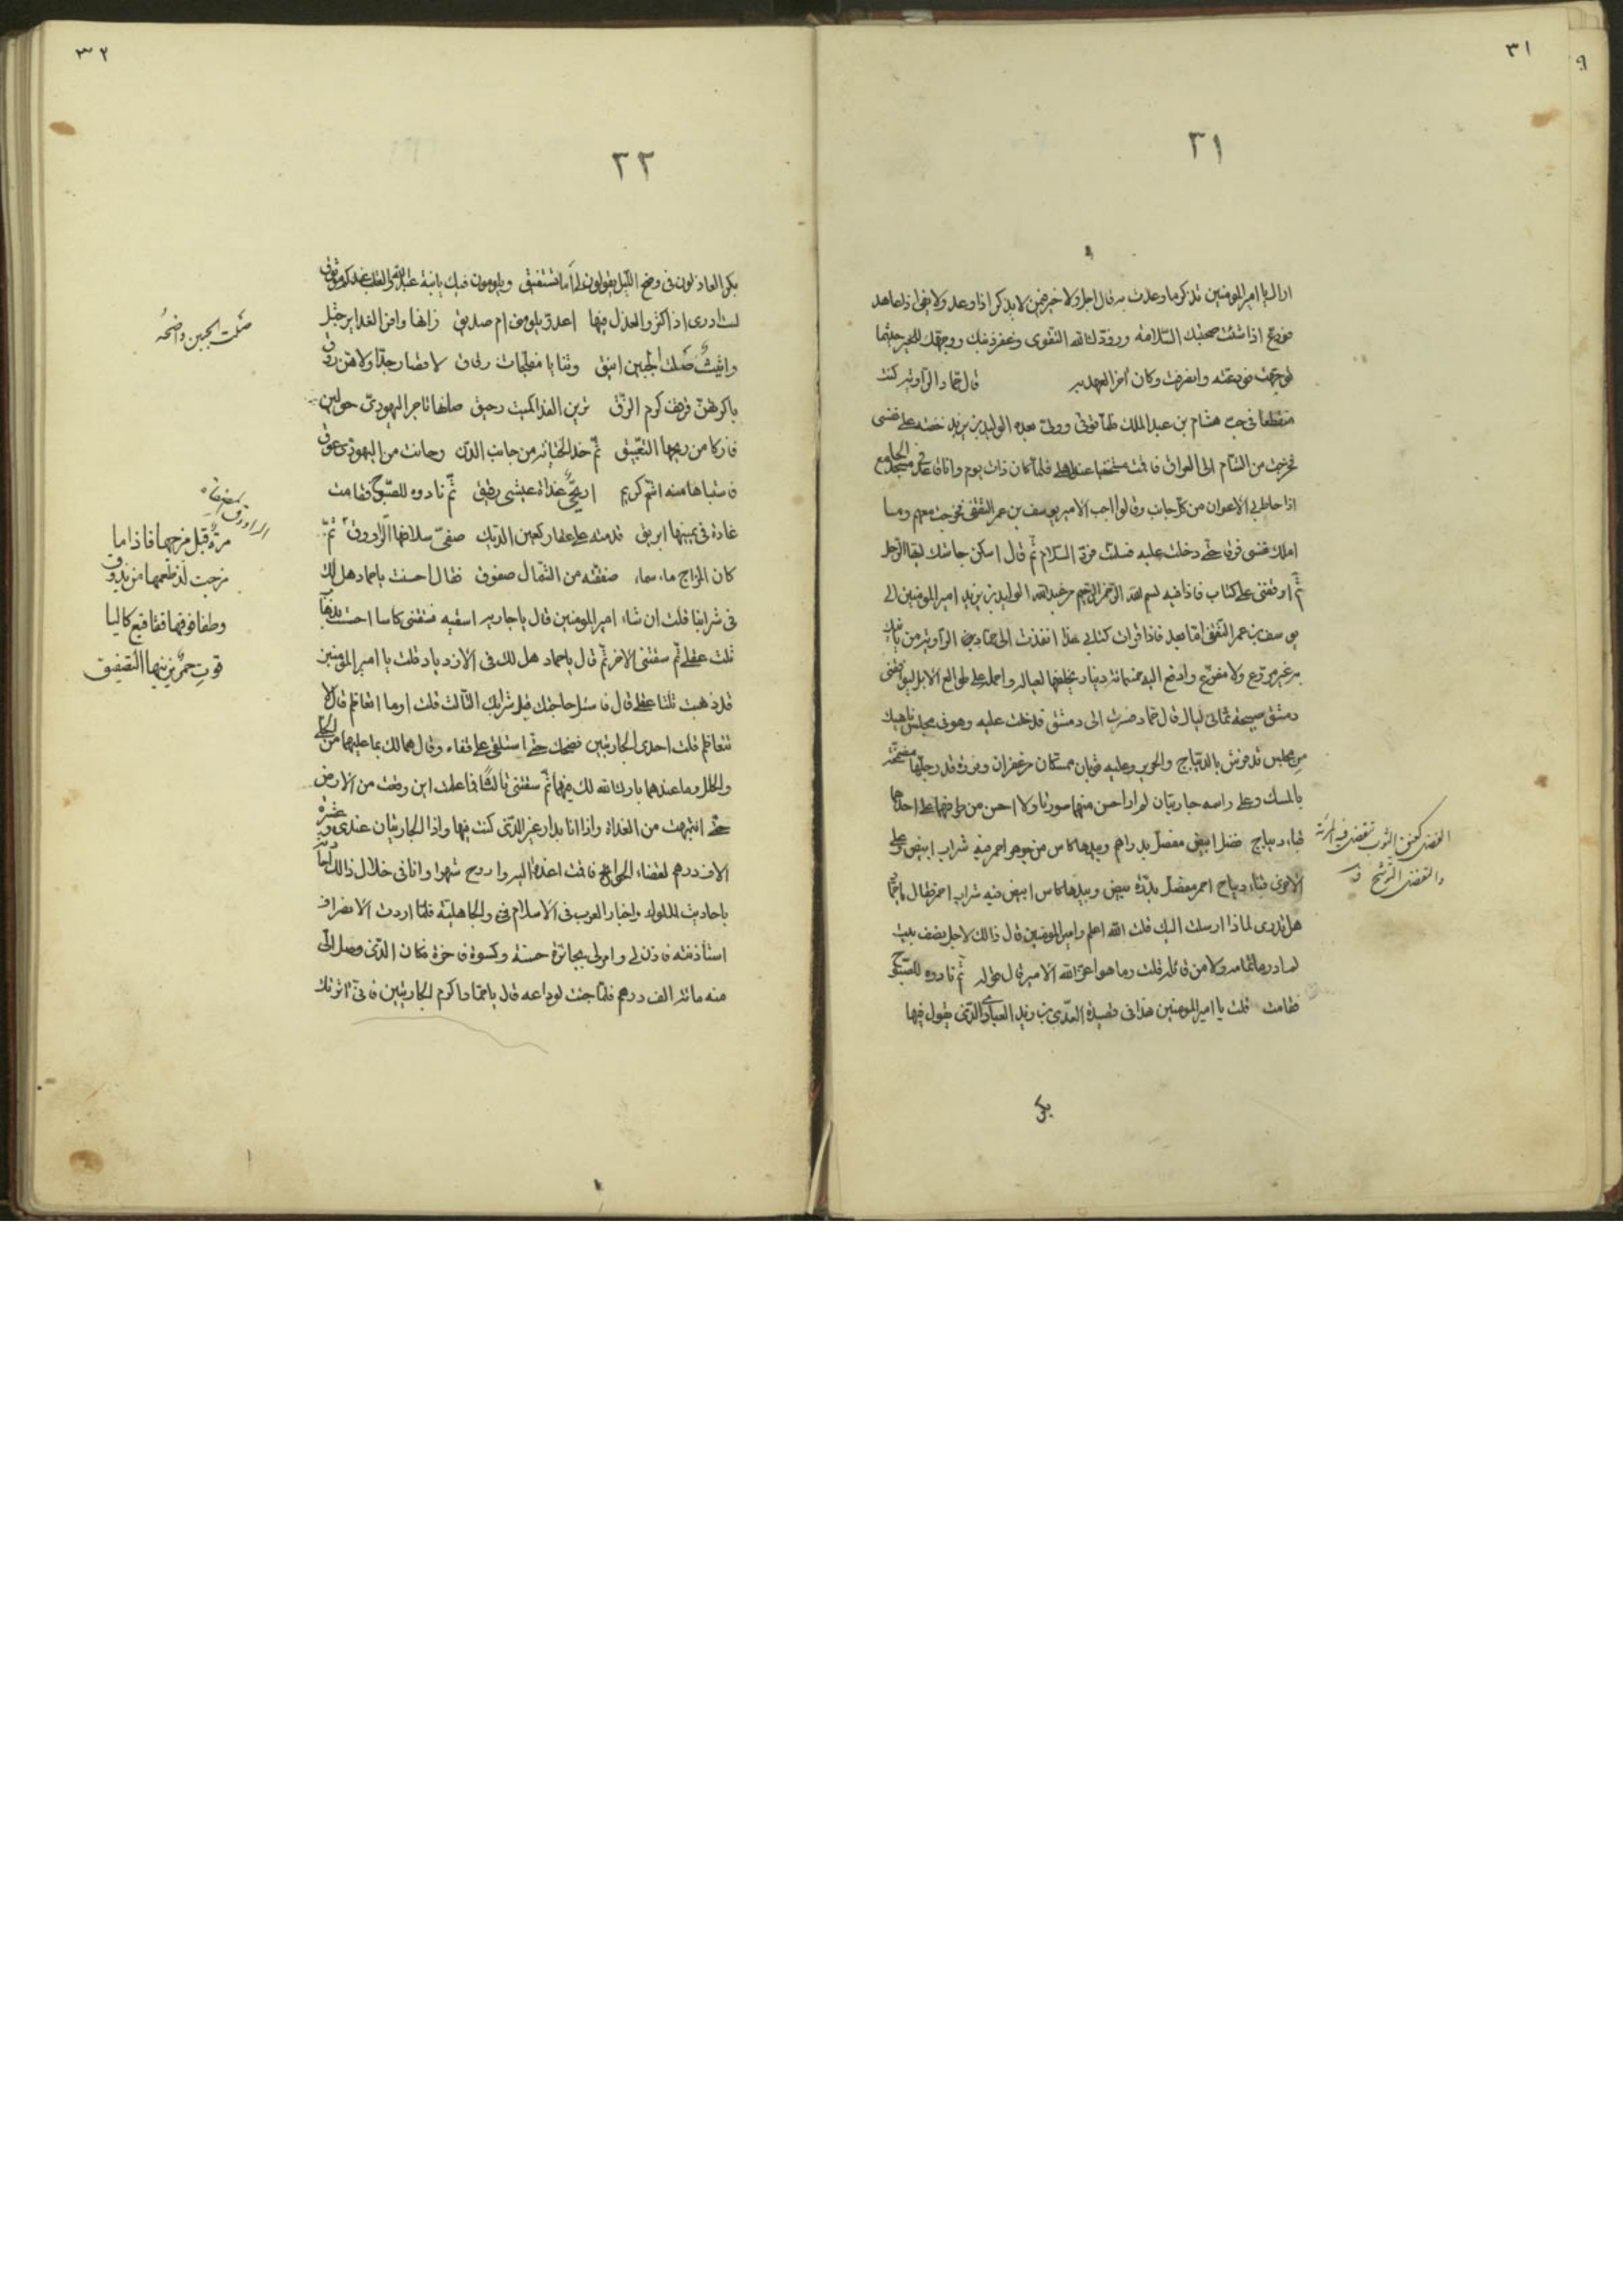 ٣١
٩
٣١
اراك يا امير المومنين تذكر ما وعدت به قال اجل ولا خير فيمن لا يذكر اذا وعد ولا يفي اذا عاهد
فودع اذا شئت صحبتك السلامة وزودك الله التقوى وغفر ذنبك ووجهك للخير حيثما
توجهت فودعته وانصرفت وكان آخر العهد به قال حماد الراوية كنت
منقطعا في جب هشام بن عبد الملك فلما توفى وولى بعده الوليد بن يزيد خفته على نفسى
فخرجت من الشام الى العراق فاقمت مستخفيا عند اهلى فلما كان ذات يوم وانا قاعد فى مسجد الجامع
اذا حاط بى الاعوان من كل جانب وقالوا اجب الامير يوسف بن عمر الثقفى فخرجت معهم وما
املك نفسى فرقا حتى دخلت عليه فسلمت فرد السلام ثم قال اسكن جاشك ايها الرجل
ثم اوقفنى على كتاب فاذا فيه بسم الله الرحمن الرحيم من عبد الله الوليد بن يزيد امير المومنين الى
يوسف بن عمر الثقفى اما بعد فاذا قرات كتابى هذا انفذت الى حماد الراوية من ياتيك
به غير مروع ولا مفزع وادفع اليه خمسمائة دينار يخلفها لعياله واحمله على طوالع الابل ليوافينى
دمشق صبيحة ثمانى ليال قال حماد فسرت الى دمشق فدخلت عليه وهو فى مجلس ناهيك
من مجلس قد فرش بالديباج والحرير وعليه ثوبان ممسكان من زعفران
بالمسك وعلى راسه جاريتان لم ار احسن منهما صورتا ولا احسن من طرفهما على احداهما
قباء ديباج ابيض مفصل وبيدها كاس من جوهر احمر فيه شراب ابيض وعلى
الاخرى قباء ديباج احمر مفصل بدرة بيض وبيدها كاس ابيض فيه شراب احمر فقال يا حماد
هل تدرى لماذا ارسلت اليك قلت الله اعلم وامير المومنين قال ذالك لاجل نصف بيت
لم ادر ما تمامه ولا من قائله قلت وما هو اعز الله الامير قال قوله ثم نادوه للصبوح
فقامت قلت يا امير المومنين هذا فى قصيدة العدى بن زيد العبادى الذى يقول فيها
والتفضل التوشح
بكر
٣٢
٢٢
بكر العاذلون فى وضح الليل يقولون لى اما تستفيق ويلومون فيك يابنة عبد الله والقلب عندكم موثوق
لست ادرى اذ اكثروا العذل فيها اعدو يلومنى ام صديق زانها وافر الغداير جثل
واثيث صلت الجبين انيق وثنايا مفلجات رقاق لا قصار جدا ولا هن روق
باكرتهن قرقف كدم الزق تريك القذا كميت رحيق صانها تاجر اليهودى حولين
فازكا من ريحها التعتيق ثم من جانب الدن وحانت من اليهودى سوق
فاستباها منه اشم كريم اريحى غداة عيشى رفيق ثم نادوه للصبوح فقامت
غادة فى يمينها ابريق قدمته على عقار كعين الديك صفى سلافها الراووق ثم
كان المزاج ماء سماء صفقته من الشمال صفوق فقال احسنت يا حماد هل لك
فى شرابنا قلت ان شاء امير المومنين قال يا جاريه اسقيه فسقتنى كاسا احسست بذهاب
ثلث عقلى ثم سقتنى الاخر ثم قال يا حماد هل لك فى الازدياد قلت يا امير المومنين
قد ذهبت ثلثا عقلى قال فاسئل حاجتك قبل شرابك الثالث قلت او ما اتعاظم قال لا
تتعاظم قلت احدى الجاريتين فضحك حتى استلقى على قفاه وقال هما لك بما عليهما من الحلى
والحلل وما عندهما بارك الله لك فيهما ثم سقتنى ثالثا فما علمت اين وقعت من الارض
حتى انتبهت من الغداة واذا انا بدار غير الذى كنت فيها واذا الجاريتان عندى وعشرة
الاف درهم لقضاء الحوايج فاقمت اغدو اليه واروح شهرا وانا فى خلال ذالك
باحاديث الملوك واخبار العرب فى الاسلام والجاهلية فلما اردت الانصراف
استأذنته فاذن لى وامر لى بجائزة حسنة وكسوة فاخرة فكان الذى وصل الى
منه مائة الف درهم فلما جئت لوداعه قال يا حماد اكرم الجاريتين فانى آثرتك
صلت الجبين واضحه
مرة قبل مزجها فاذا ما
مزجت لذ طعمها من يذوق
وطفا فوقها فقاقيع كاليا
قوت حمر يزينها التصفيق